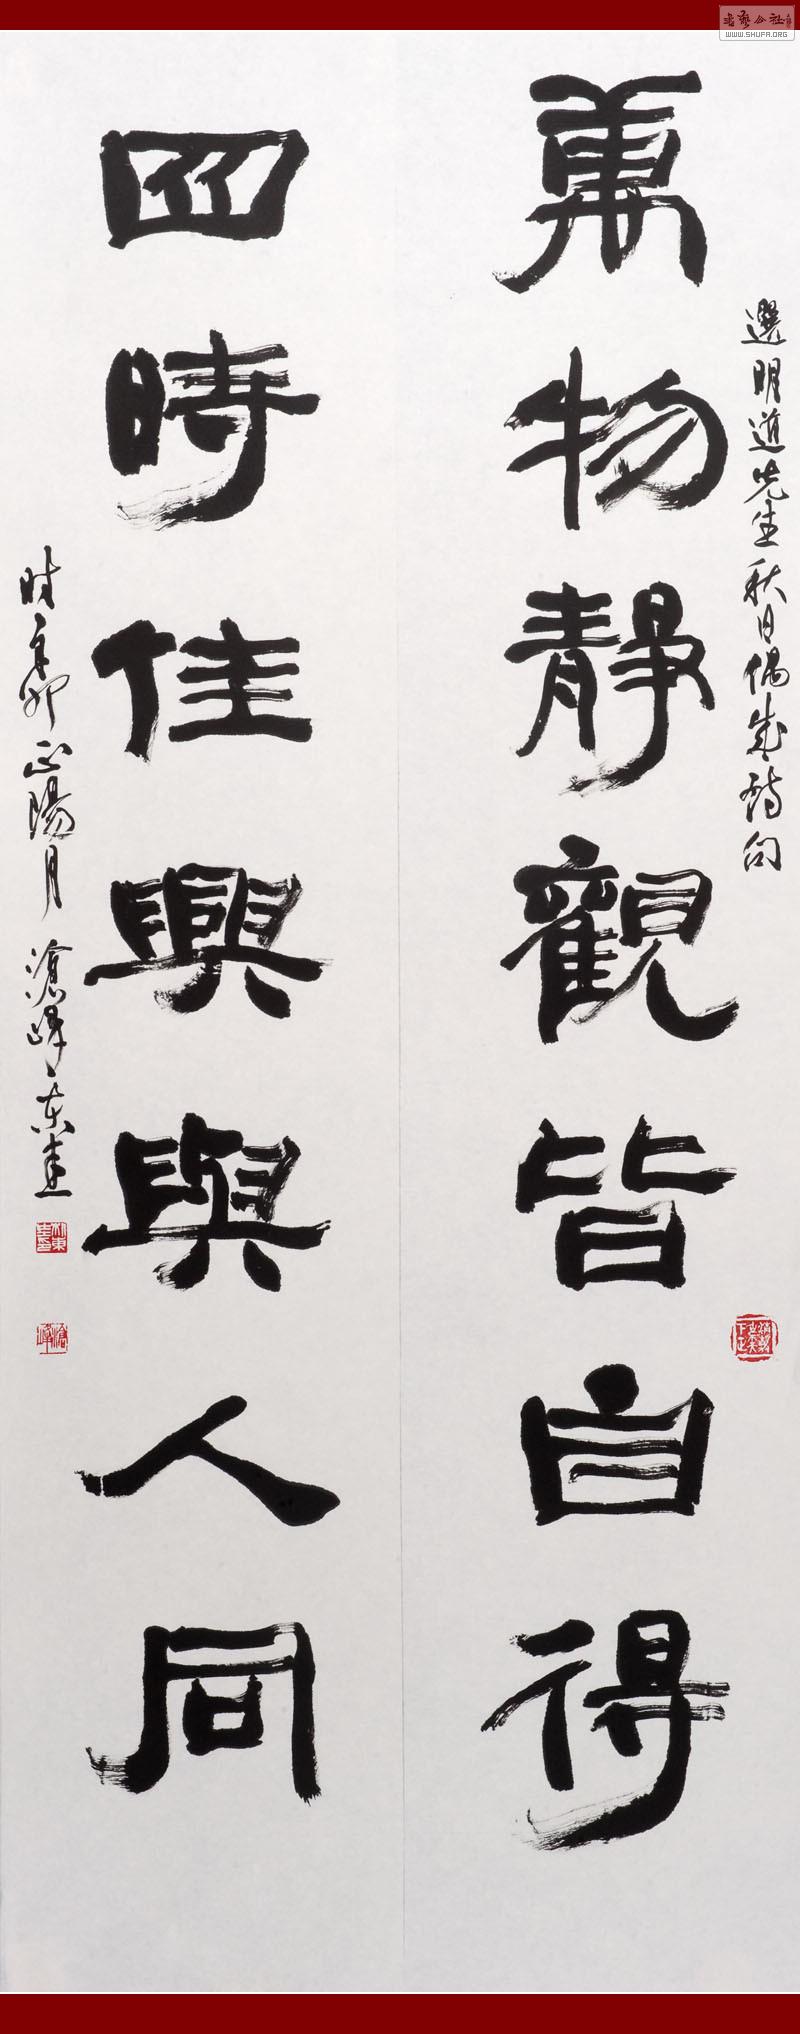 書藝公社
WWW.SHUFA.ORG
選明道先生秋日偶成詩句
萬物靜觀皆自得
四時佳興與人同
時辛卯正陽月滄峰东建
滄峰